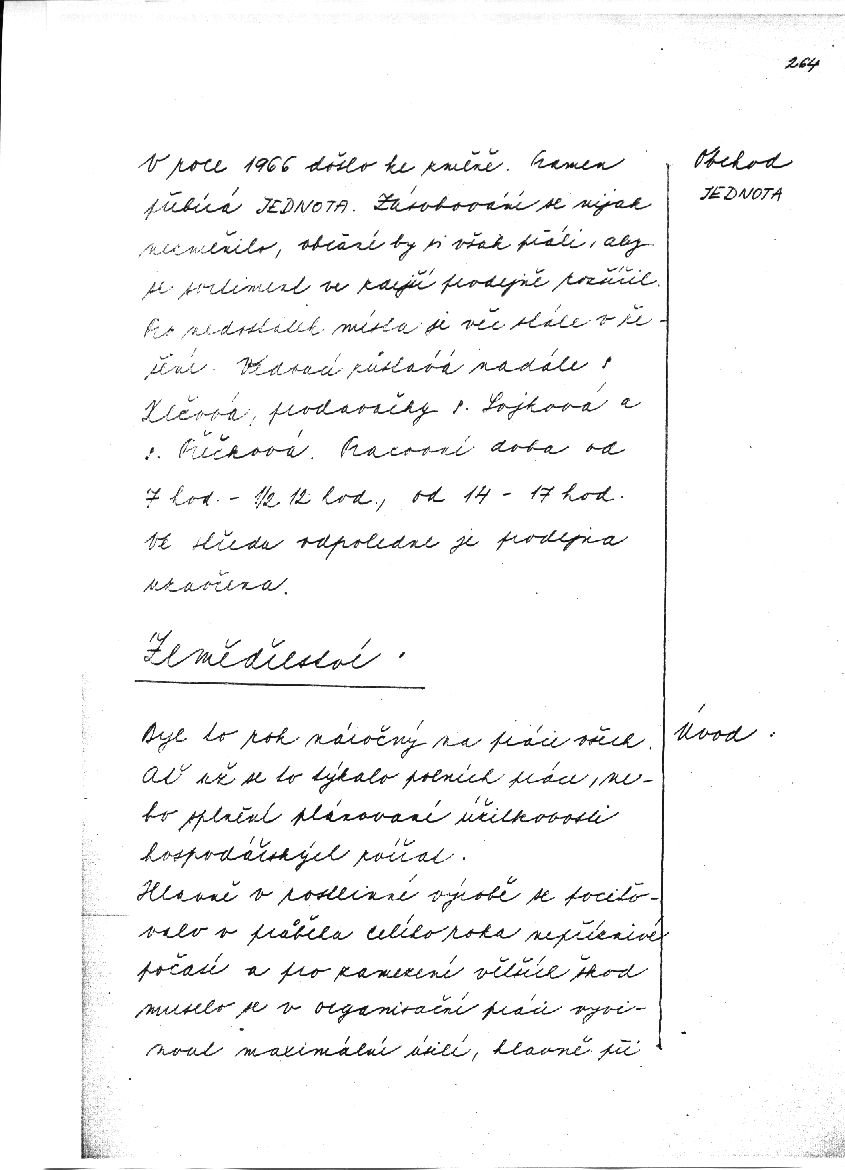 264
V roce 1966 došlo ke změně. Pramen
Obchod
přebírá JEDNOTA. Zásobování se nijak
JEDNOTA
nezměnilo, občané by si však přáli, aby
se sortiment ve zdejší prodejně rozšířil.
Pro nedostatek místa je věc stále v ře-
šení. Vedoucí zůstává nadále s.
Vlčová, prodavačky s. Sojková a
s. Pracovní doba od
7 hod. - 1/2 12 hod., od 14 - 17 hod.
Ve středu odpoledne je prodejna
uzavřena.
Zemědělství.
Byl to rok náročný na práci všech.
Úvod.
Ať už se to týkalo polních prací, ne-
bo splnění plánované užitkovosti
hospodářských zvířat.
Hlavně v rostlinné výrobě se pociťo-
valo v průběhu celého roka nepříznivé
počasí a pro zamezení větších škod
muselo se v organisační práci vyvi-
nout maximální úsilí, hlavně při